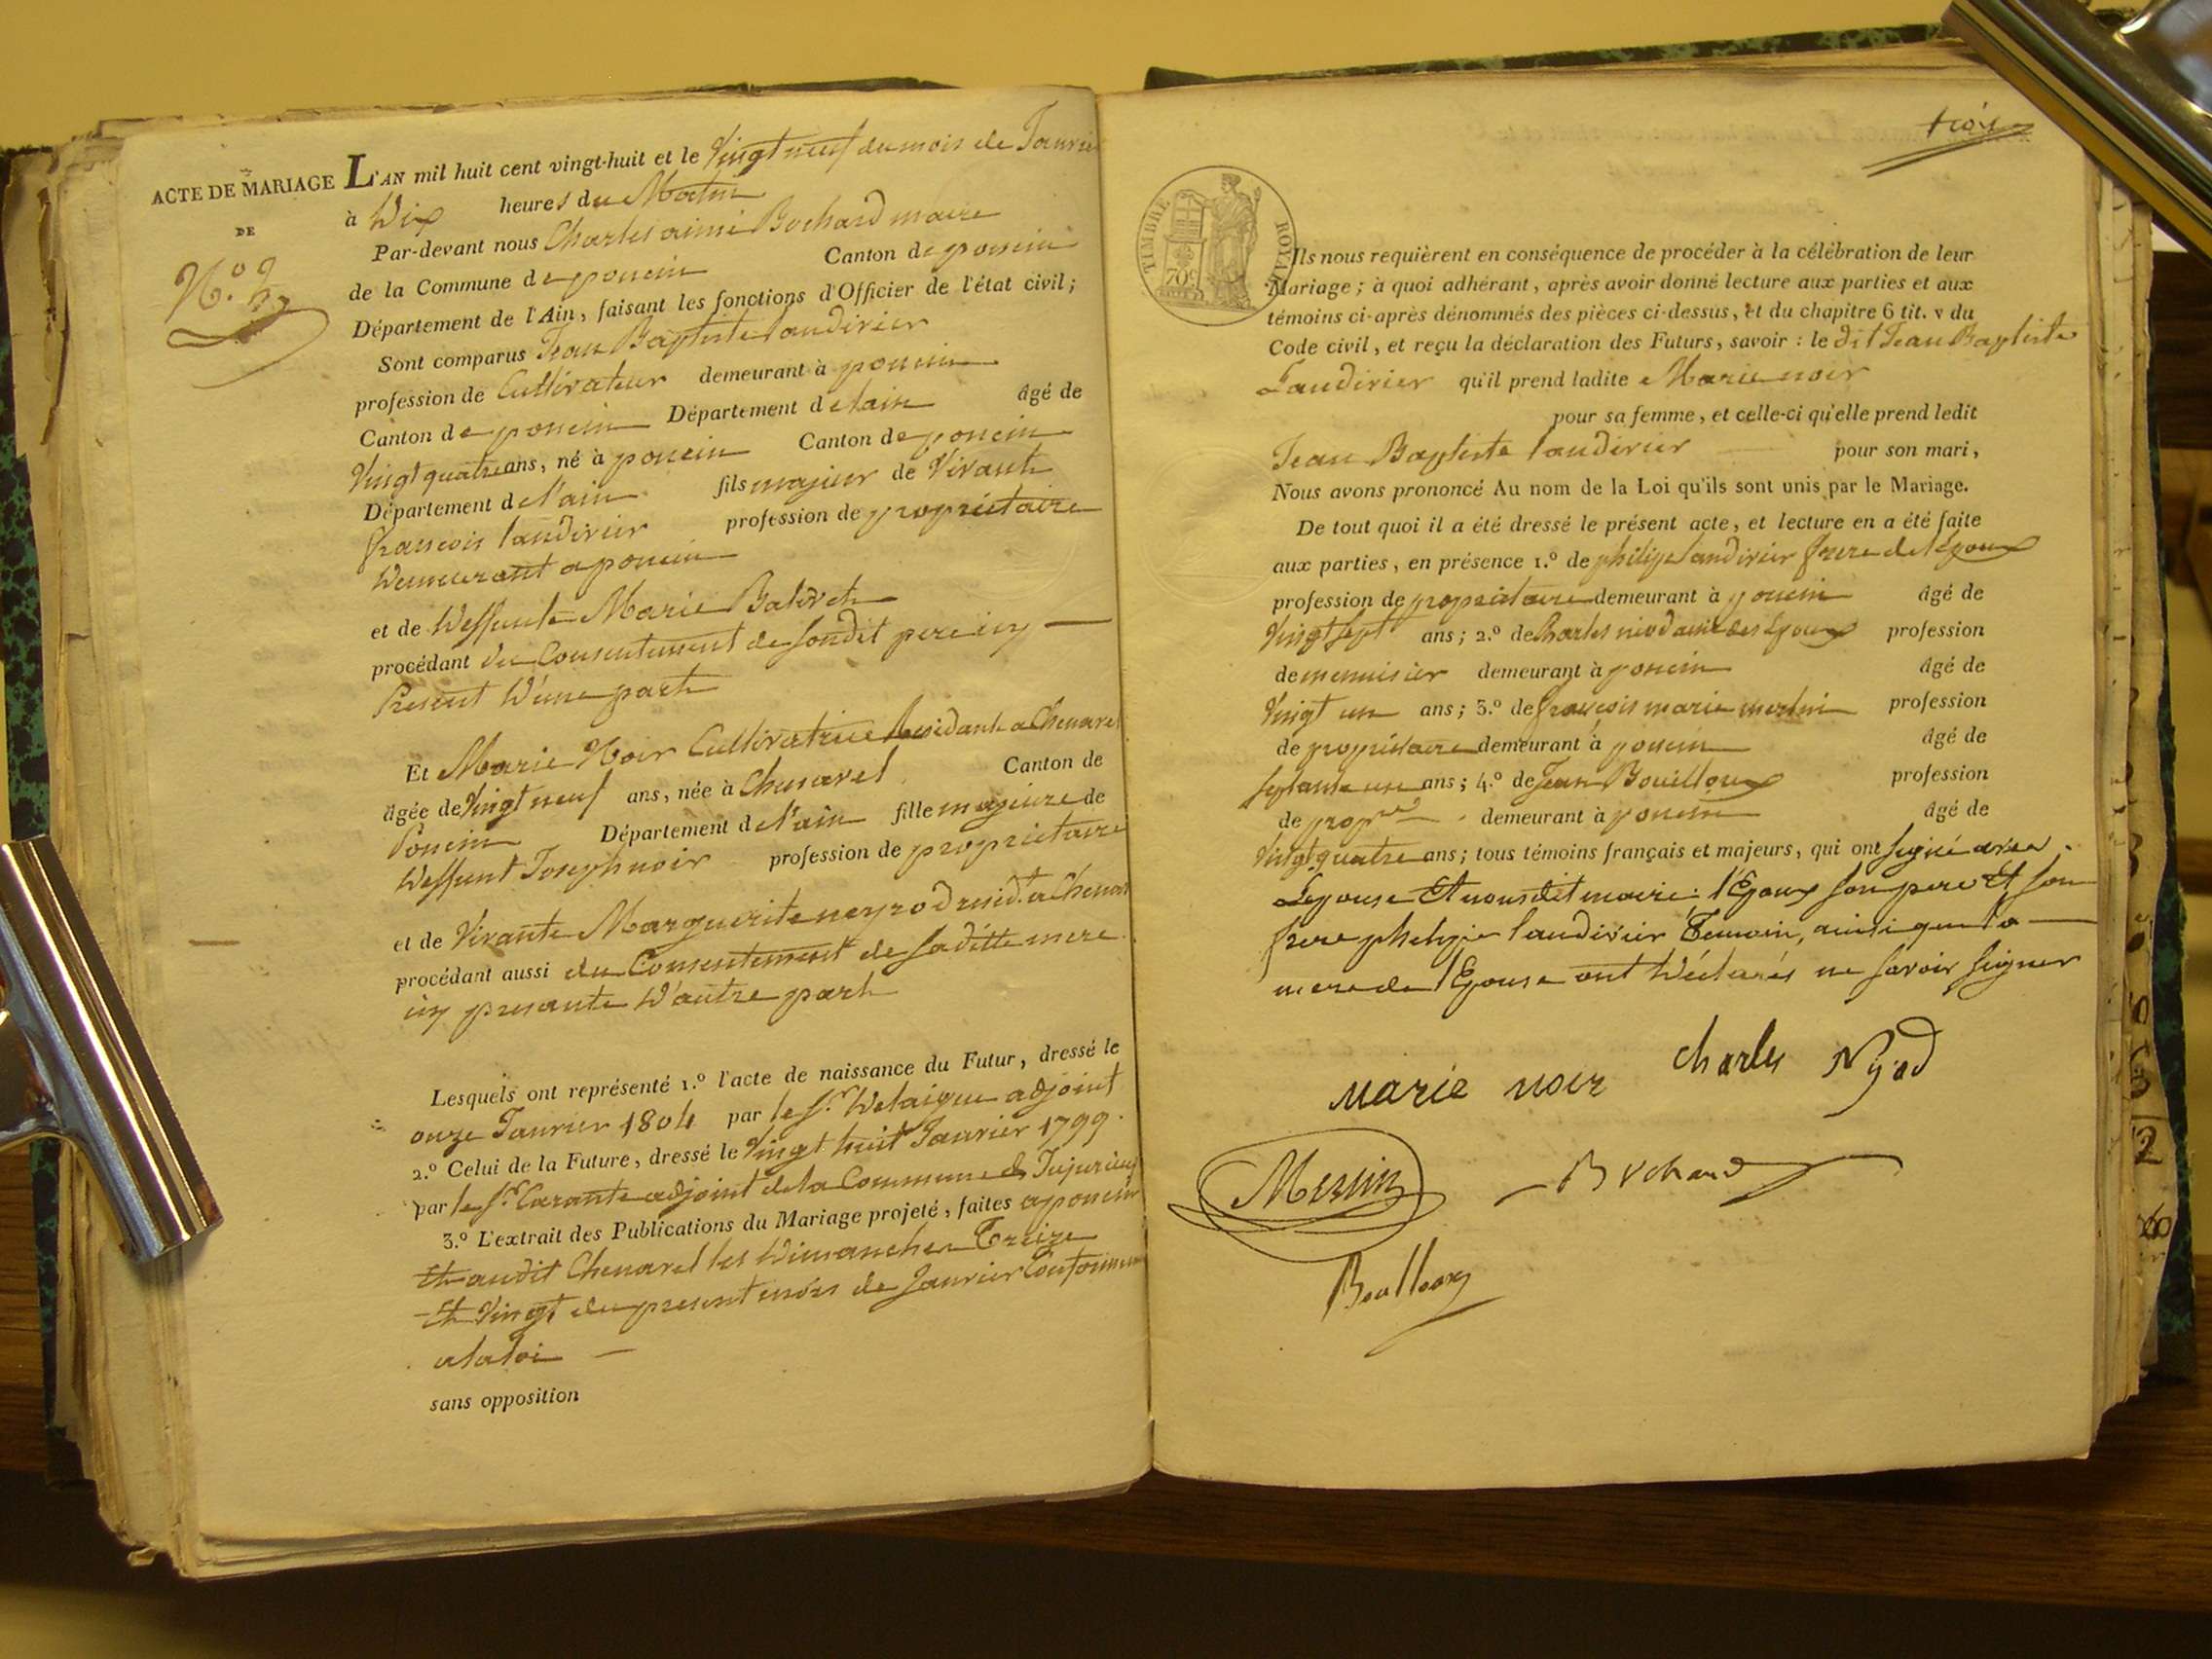 ACTE DE MARIAGE
DE
N.o
L'AN mil huit cent vingt-huit et le Vingt neuf du mois de Janvie
à Dix heures du Matin
Par-devant nous Charles aimé Bochard maire
de la Commune de poncin Canton de poncin
Département de l'Ain, faisant les fonctions d'Officier de l'état civil;
Sont comparus Jean Baptiste Laudirier
profession de Cultivateur demeurant à poncin
Canton de poncin Département de lain âgé de
Vingt quatre ans, né à poncin Canton de poncin
Département de l'ain fils majeur de Vivant
francois laudirier profession de proprietaire
Demeurant a poncin
et de Deffunte Marie
procédant du Consentement de sondit pere icy
Present D'une part
Et Marie Noir Cultivatrice Residante a Chenavel
âgée de Vingt neuf ans, née à Chenavel Canton de
Poncin Département de l'ain fille majeure de
Deffunt Joseph noir profession de proprietaire
et de Vivante Marguerite neyrod resid.te a Chenav
procédant aussi du Consentement de saditte mere
icy presante D'autre part
Lesquels ont représenté 1.o l'acte de naissance du Futur, dressé le
onze Janvier 1804 par le S.r Delaigue adjoint
2.o Celui de la Future, dressé le Vingt huit Janvier 1799.
par le S.r Carante adjoint de la Commune de Jujurieux
3.o L'extrait des Publications du Mariage projeté, faites a poncin
Et audit Chenavel les Dimanches Treize
Et Vingt du present mois de Janvier Conformem
a la loi
sans opposition
trois
TIMBRE ROYAL
70c
Ils nous requièrent en conséquence de procéder à la célébration de leur
Mariage; à quoi adhérant, après avoir donné lecture aux parties et aux
témoins ci-après dénommés des pièces ci-dessus, et du chapitre 6 tit. v du
Code civil, et reçu la déclaration des Futurs, savoir: le dit Jean Baptiste
Laudirier qu'il prend ladite Marie noir
pour sa femme, et celle-ci qu'elle prend ledit
Jean Baptiste laudirier pour son mari,
Nous avons prononcé Au nom de la Loi qu'ils sont unis par le Mariage.
De tout quoi il a été dressé le présent acte, et lecture en a été faite
aux parties, en présence 1.o de philipe laudirier frere de l'époux
profession de proprietaire demeurant à poncin âgé de
Vingt sept ans; 2.o de Charles niod amie des Epoux profession
de menuisier demeurant à poncin âgé de
Vingt un ans; 3.o de francois marie merlin profession
de propriétaire demeurant à poncin âgé de
septante un ans; 4.o de Jean Bouilloux profession
de prop.re demeurant à poncin âgé de
Vingt quatre ans; tous témoins français et majeurs, qui ont signé avec
Lepouse Et nousdit maire: l'Epoux son pere Et son
frere phelipe laudirier Temoin, ainsi que la
mere de l'Epouse ont Déclarés ne savoir signer
marie noir Charles Nyod
Merlin Bochard
Boulloux